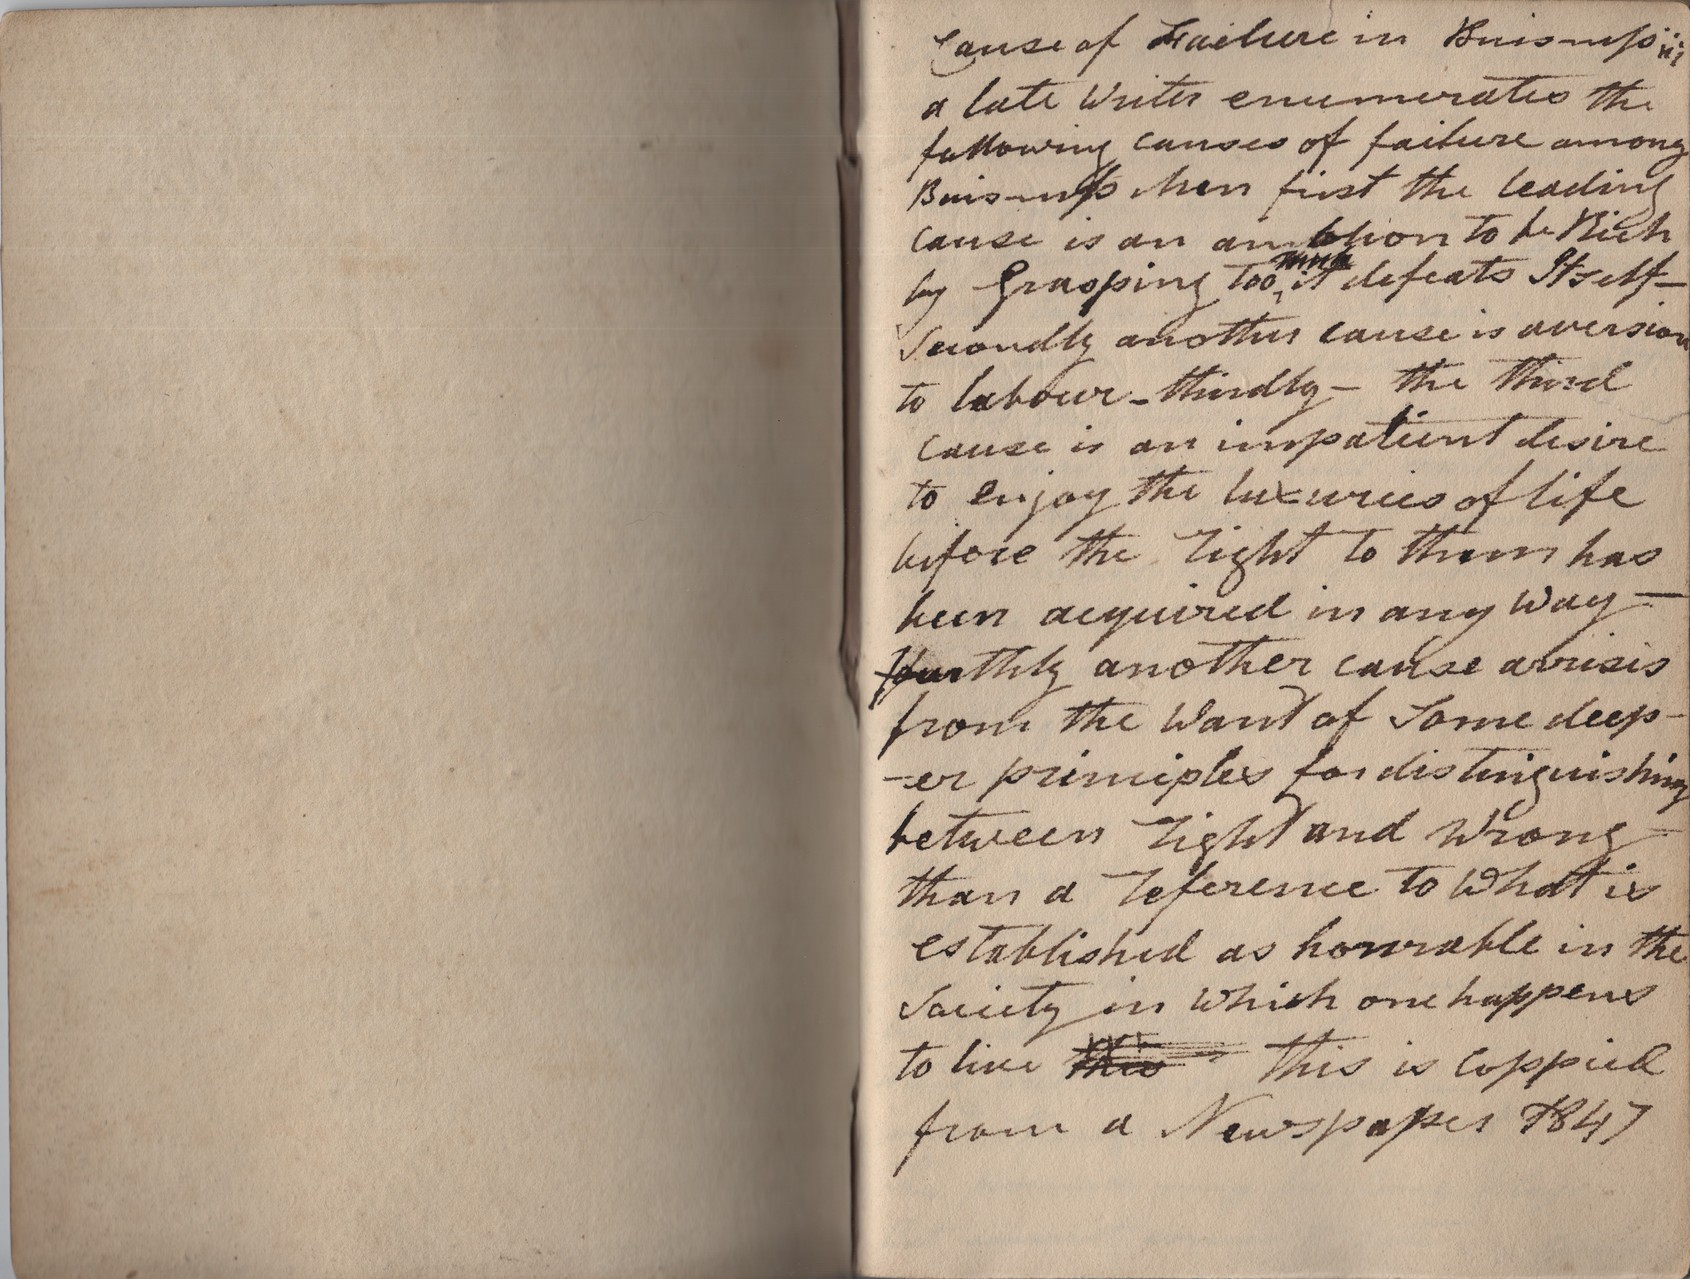 Cause of Failure in Buisness
a late Writer enumerates the
following causes of failure among
Buisness Men first the leading
cause is an ambition to be Rich
by Grasping too much it defeats Itself—
Secondly another cause is aversion
to labour - thirdly - the third
cause is an impatient desire
to enjoy the luxuries of life
before the right to them has
been acquired in any Way —
fourthly another cause arisis
from the Want of Some deep-
-er principles for distinguishing
between right and Wrong -
than a reference to What is
established as honrable in the
Society in Which one happens
to live this this is coppied
from a Newspaper 1847